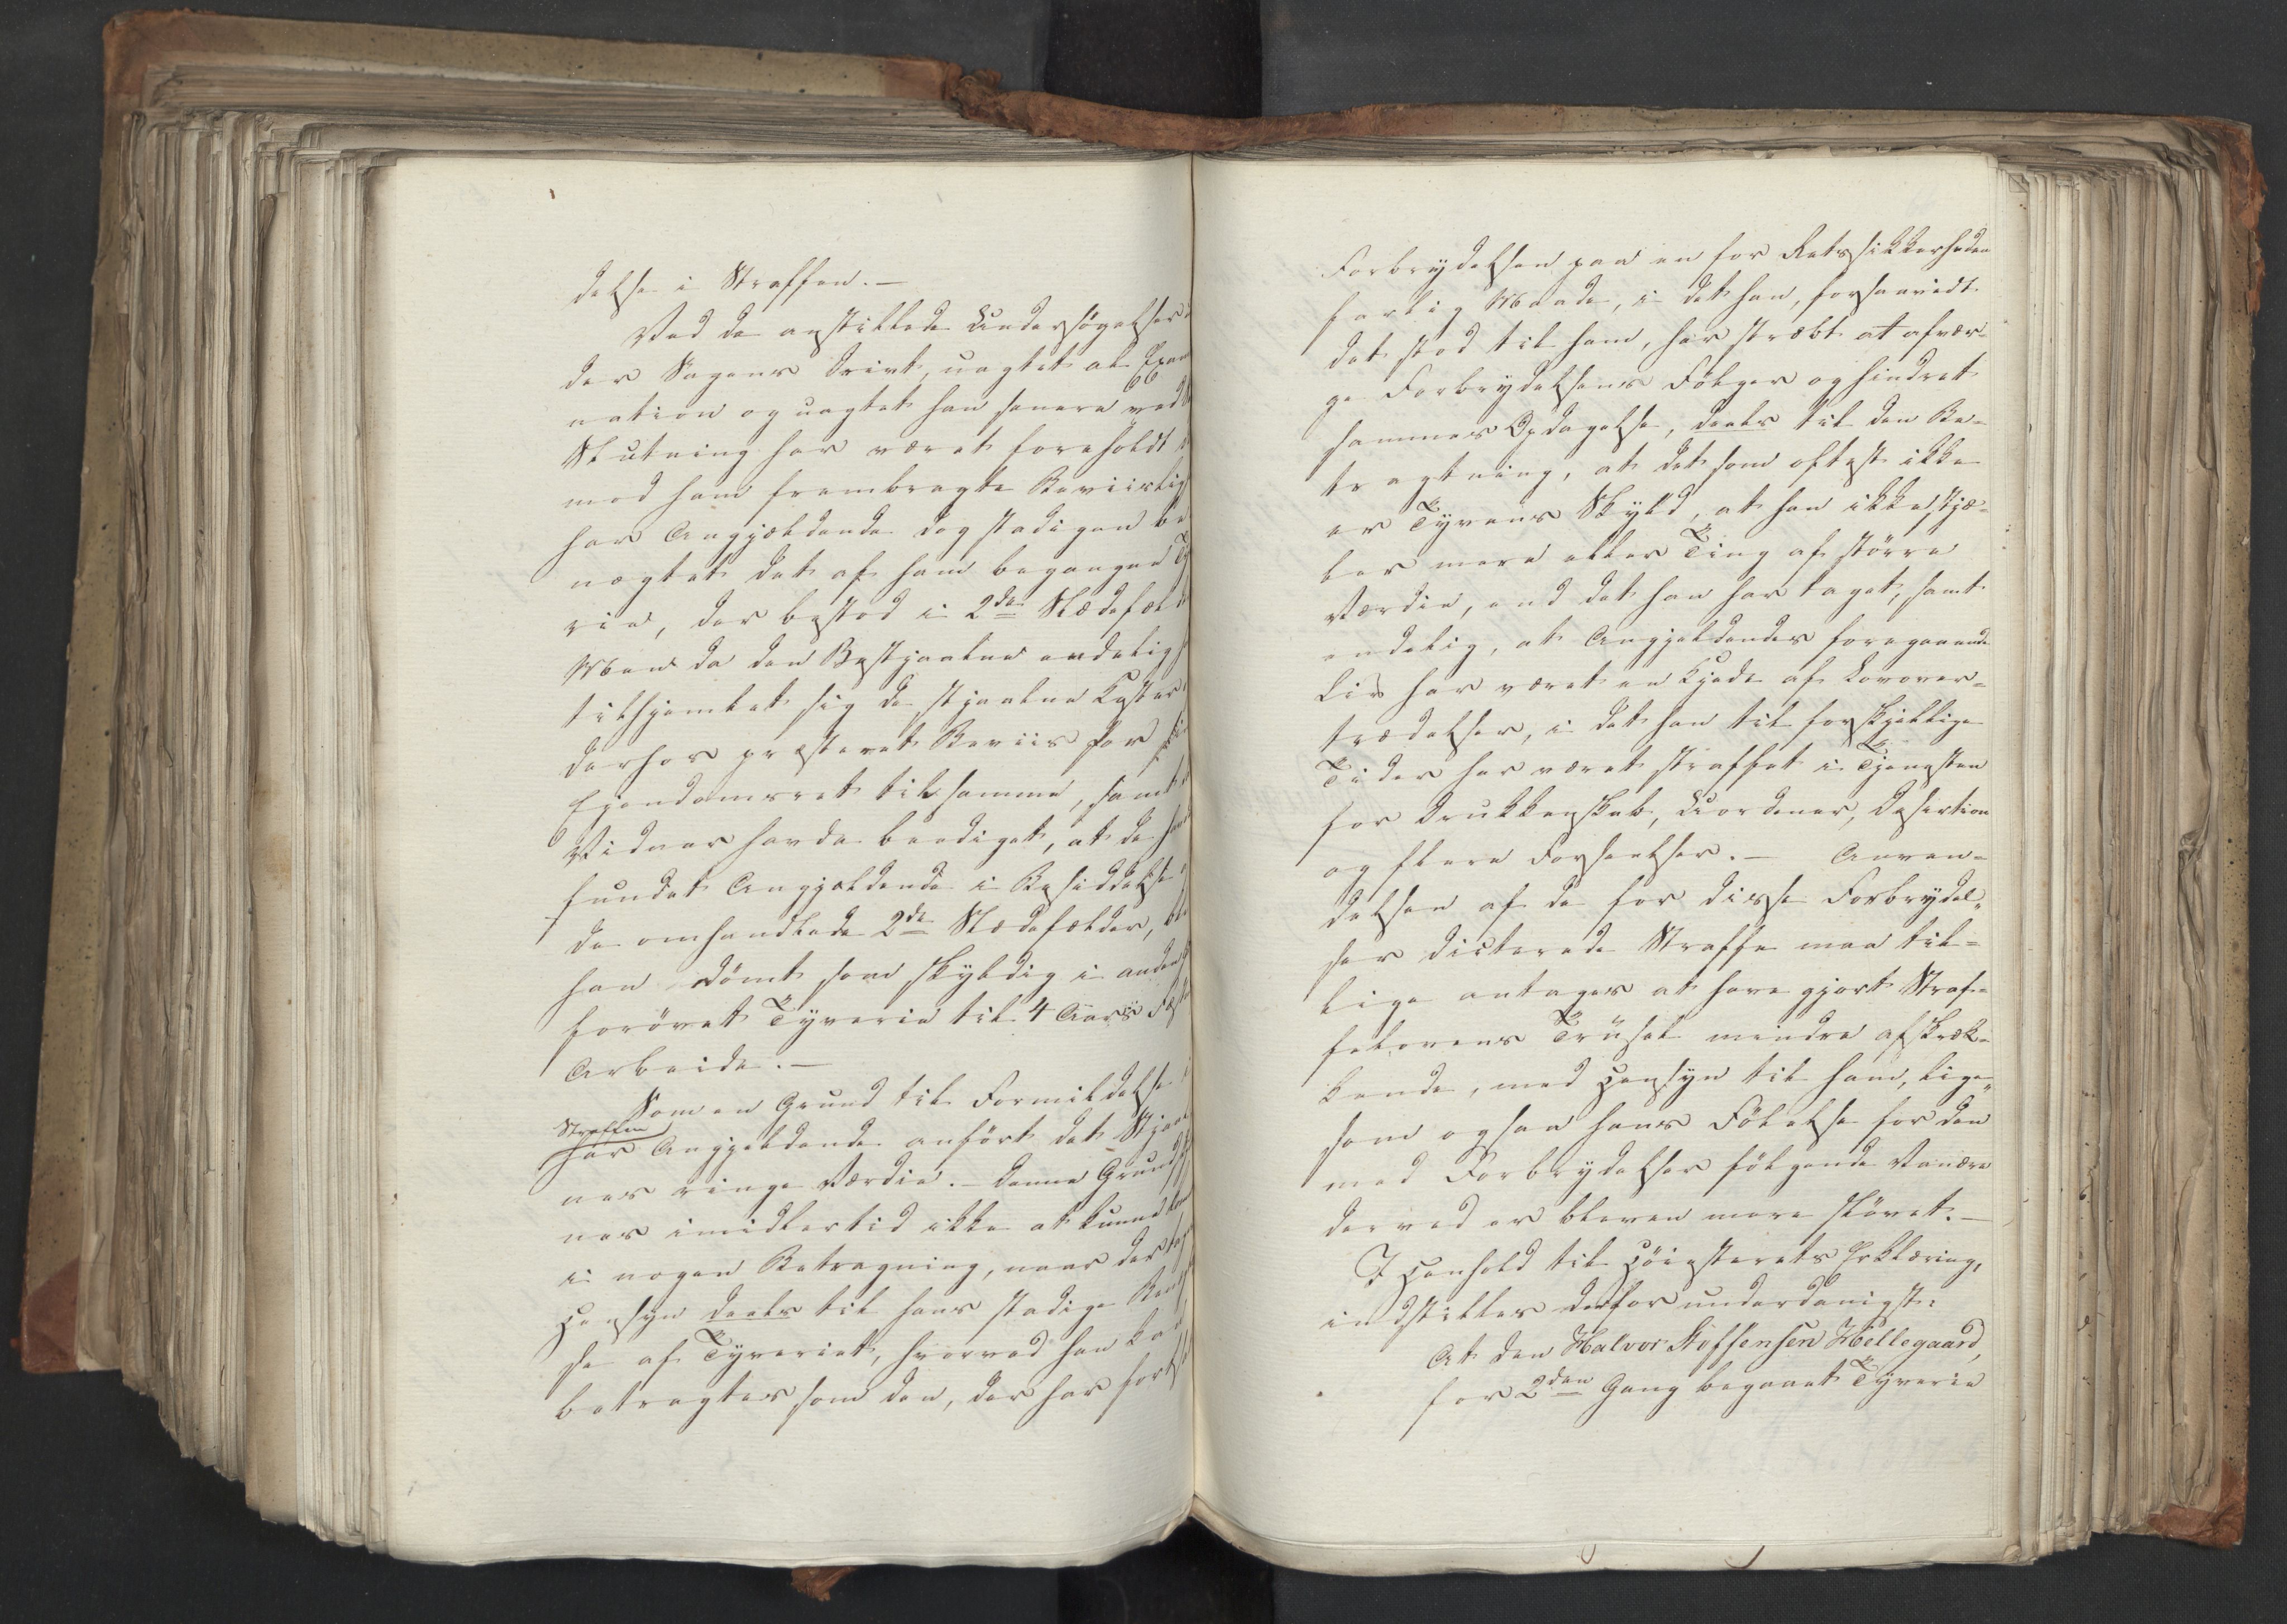 delse i Straffen. —
Ved de anstillede Undersøgelser
der Sagens Drivt, uagtet al Exami
nation og uagtet han senere ved
Slutning har været foreholdt
mod ham frembragte Beviislig
har Angjældende dog stadigen be
nægtet det af ham begangne Ty
rie, der bestod i 2de Skædefæl
Men da den Bestjaalne endelig
tilhjemlet sig de stjaalne Koster
derhos præsteret Beviis for sin
Ejendomsret til samme, samt
Vidner havde beediget, at de have
fundet Angjældende i Besiddelse
de omhandlede 2de Skædefælder, ble
han dømt som skyldig i anden
forøvet Tyverie til 4 Aars Fæst
Arbeide. —
Som en Grund til Formildelse i
Straffen
har Angjeldende anført det Stjaal
nes ringe Værdie. — Denne Grund
nes imidlertid ikke at kunne kom
i nogen Betragning, naar der tages
Hensyn deels til hans stadige Benæg
se af Tyveriet, hvorved han kan
betragtes som den, der har fortsat
Forbrydelsen paa en for Retssikkerheden
farlig Maade, i det han, forsaavidt
det stod til ham, har stræbt at afvær-
ge Forbrydelsens Følger og hindret
sammes Opdagelse, deels til den Be-
tragtning, at det som oftest ikke
er Tyvens Skyld, at han ikke stjæ-
ler mere eller Ting af større
Værdie, end det han har taget, samt
endelig, at Angjeldendes foregaaende
Liv har været en Kjede af Lovover-
trædelser, i det han til forskjellige
Tider har været straffet i Tjenesten
for Drukkenskab, Uordener, Desertion
og flere Forseelser. — Anven-
delsen af de for disse Forbrydel-
ser dicterede Straffe maa til-
lige antages at have gjort Straf-
felovens Trüsel mindre afskræk-
kende, med Hensyn til ham, lige-
som ogsaa hans Følelse for den
med Forbrydelser følgende Vanære
derved er bleven mere sløvet. —
I Henhold til Høiesterets Erklæring,
indstilles derfor underdanigst:
At den Halvor Stoffensen Hellegaard,
for 2den Gang begaaet Tyverie